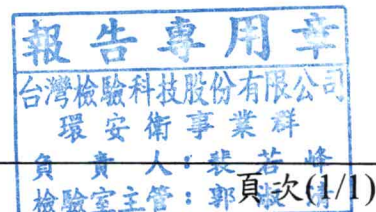 報告專用章
台灣檢驗科技股份有限公司
環安衛事業群
負責人：裴若峰
檢驗室主管：郭淑
頁次(1/1)